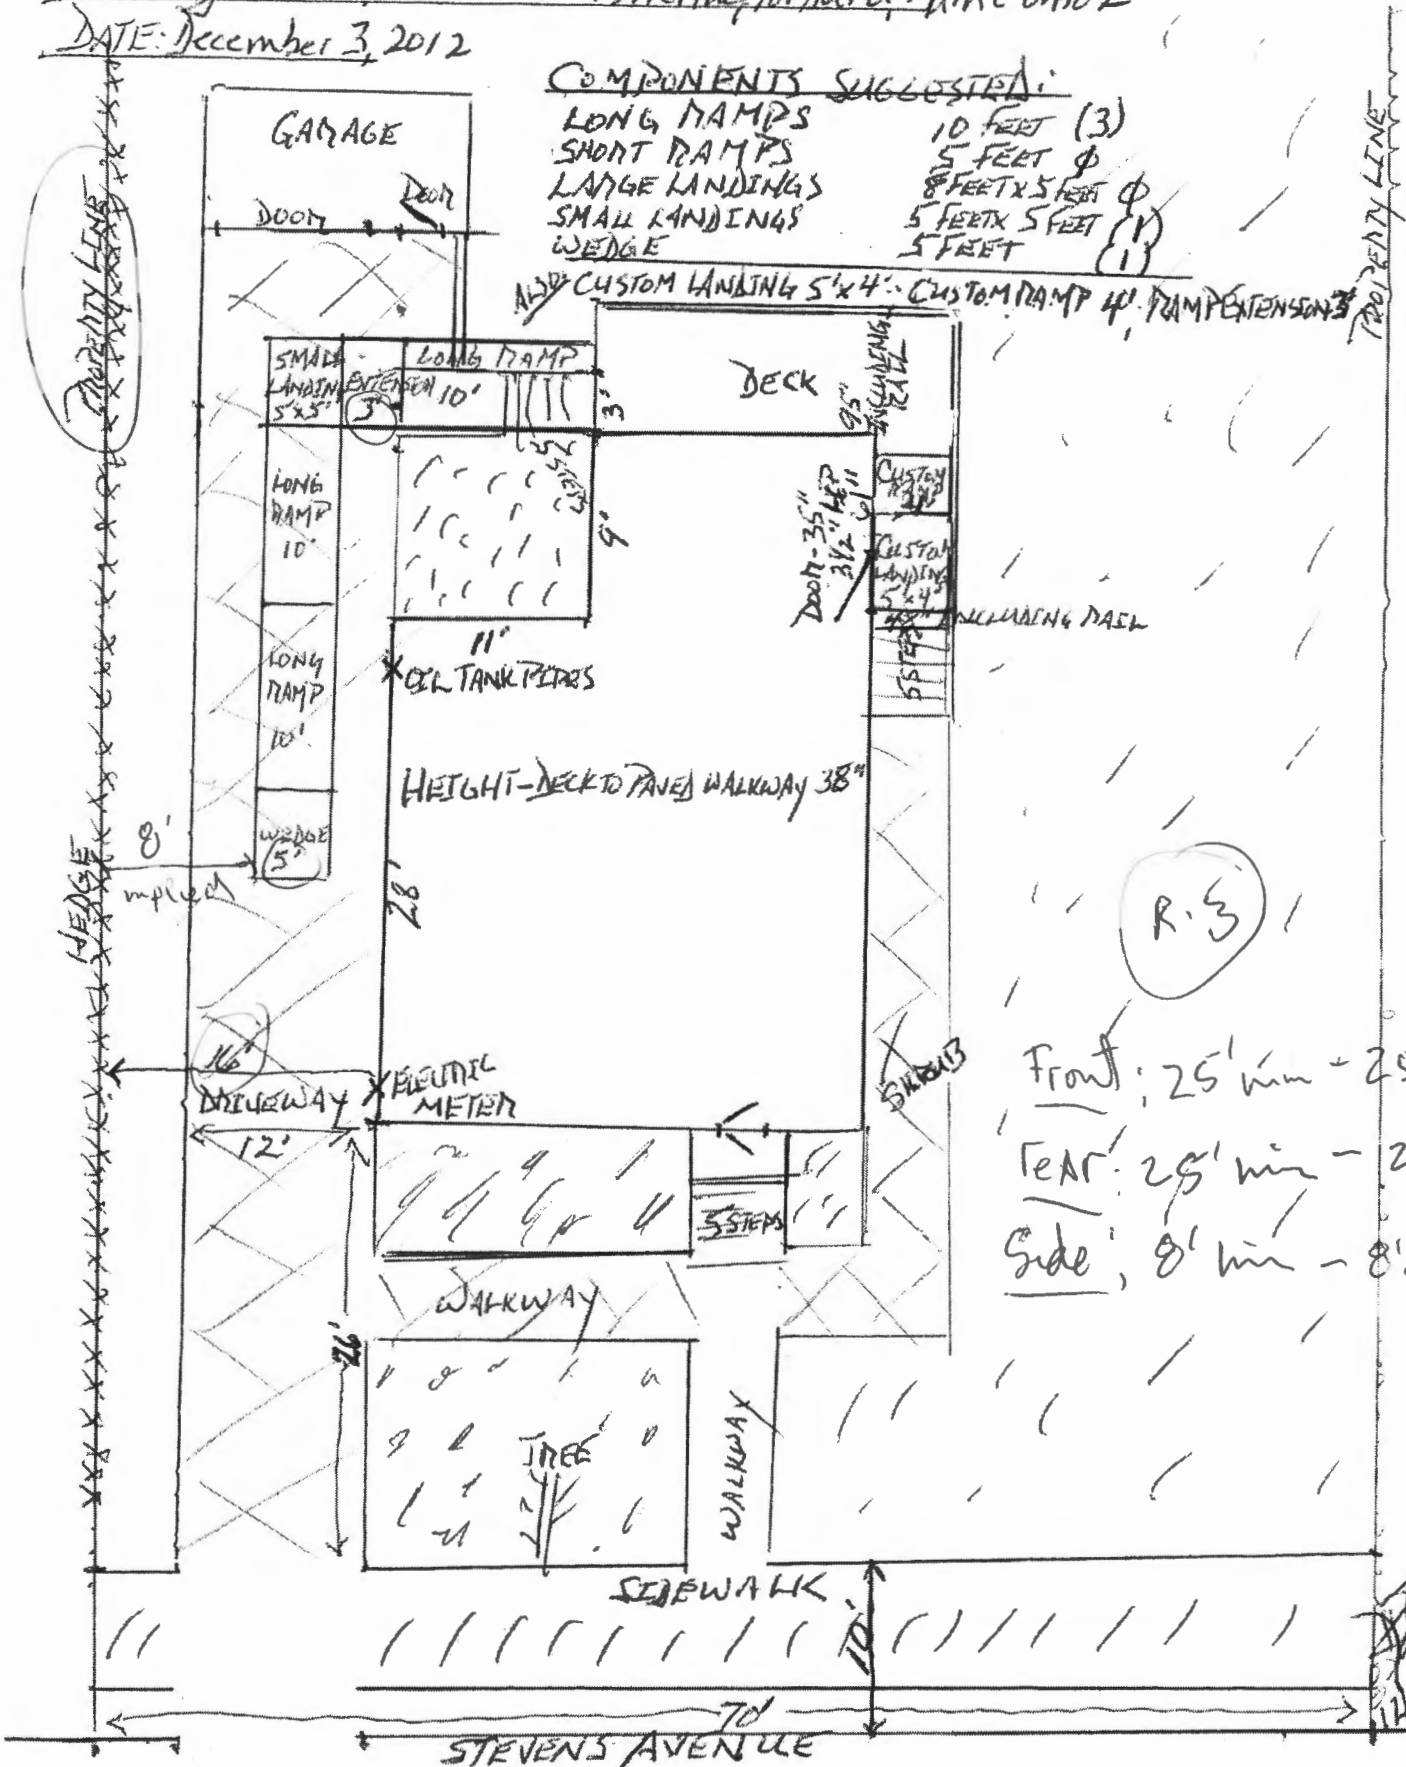 DATE: December 3, 2012
COMPONENTS SUGGESTED:
LONG RAMPS 10 FEET (3)
SHORT RAMPS 5 FEET ϕ
LARGE LANDINGS 8 FEET X 5 FEET ϕ
SMALL LANDINGS 5 FEET X 5 FEET (1)
WEDGE 5 FEET (1)
ALSO: CUSTOM LANDING 5'x4'. CUSTOM RAMP 4', RAMP EXTENSION 3'
PROPERTY LINE
PROPERTY LINE
GARAGE
DOOR
DOOR
SMALL
LANDING
5x5'
EXTENSION
3'
LONG RAMP
10'
3'
DECK
95"
INCLUDING
RAIL
STEPS
9'
LONG
RAMP
10'
CUSTOM
RAMP
4'
DOOR-35"
3 1/2" LIP
CUSTOM
LANDING
5'x4'
INCLUDING RAIL
5 STEPS
11'
OIL TANK PIPES
LONG
RAMP
10'
HEIGHT-DECK TO PAVED WALKWAY 38"
WEDGE
5'
8'
implied
HEDGE
28'
R-3
16'
DRIVEWAY
12'
ELECTRIC
METER
SHRUB
Front: 25' min - 25
rear: 25' min - 2
Side: 8' min - 8'
5 STEPS
WALKWAY
26'
TREE
WALKWAY
SIDEWALK
10'
70'
STEVENS AVENUE